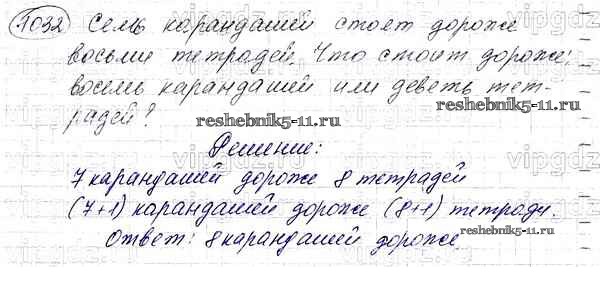 1032 Семь карандашей стоят дороже
восьми тетрадей. Что стоит дороже:
восемь карандашей или деветь тет-
радей?
reshebnik5-11.ru
reshebnik5-11.ru
Решение:
7 карандашей дороже 8 тетрадей
(7+1) карандашей дороже (8+1) тетради.
reshebnik5-11.ru
Ответ: 8 карандашей дороже